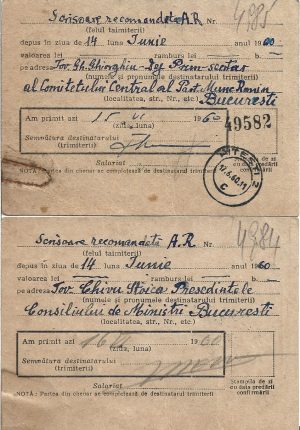 Scrisoare recomandată A.R. Nr. 4985
(felul taimiterii)
depus în ziua de 14 luna Iunie anul 1960
valoarea lei ramburs lei
pe adresa Tov. Gh. Gheorghiu-Dej Prim-secretar
al Comitetului Central al Part. Munc. Romîn
București
(numele și pronumele destinatarului trimiterii)
(localitatea, str., Nr., etc.)
Am primit azi 15 VI 1960
(ziua, luna)
49582
Semnătura destinatarului
(trimiterii)
Salariat
PITEȘTI 2
17.6.60.11
C
de zi cu
data predării
confirmării
NOTĂ: Partea din chenar se completează de destinatarul trimiterii
Scrisoare recomandată A.R. Nr. 4984
(felul taimiterii)
depus în ziua de 14 luna Iunie anul 1960
valoarea lei ramburs lei
pe adresa Tov. Chivu Stoica Președintele
(numele și pronumele destinatarului trimiterii)
Consiliului de Miniștri București
(localitatea, str., Nr., etc.)
Am primit azi 16 VI 1960
(ziua, luna)
Semnătura destinatarului
(trimiterii)
Salariat
Ștampila de zi
cu data predării
confirmării
NOTĂ: Partea din chenar se completează de destinatarul trimiterii